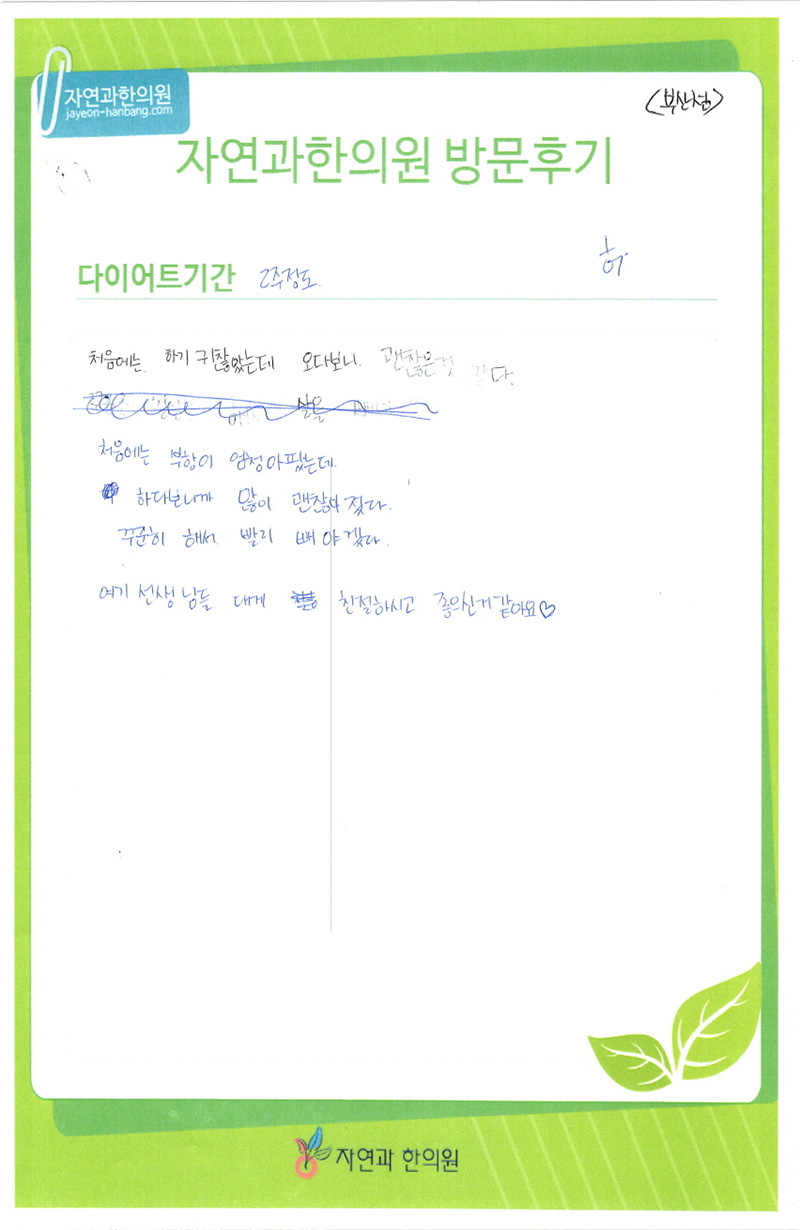 자연과한의원
jayeon-hanbang.com
(부산점)
자연과한의원 방문후기
허
다이어트기간 2주정도.
처음에는. 하기 귀찮았는데 오다보니. 괜찮은것 같다.
살을
처음에는 부항이 엄청아팠는데.
하다보니까 많이 괜찮아 졌다.
꾸준히 해서 빨리 빼야겠다.
여기 선생님들 대게 친절하시고 좋으신거같아요♡
자연과 한의원